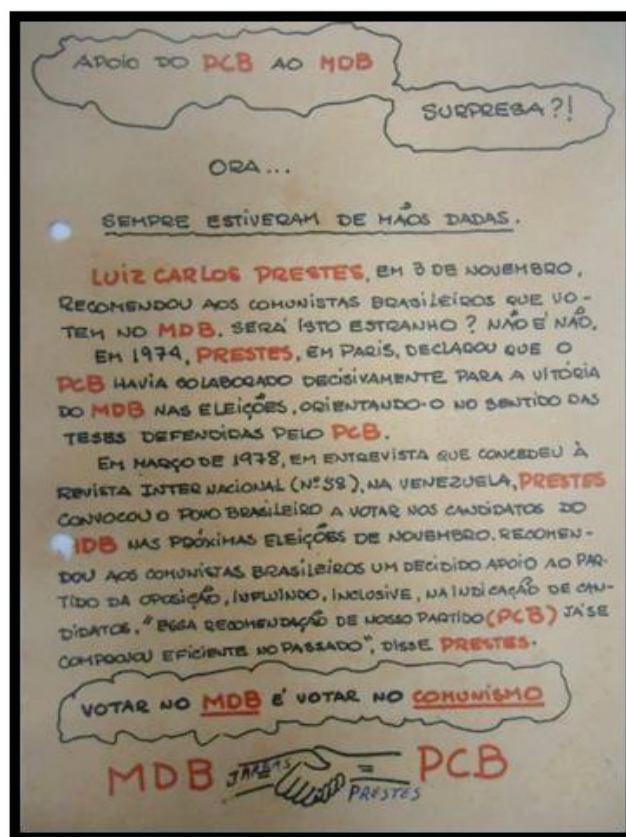 APOIO DO PCB AO MDB
SURPRESA?!
ORA...
SEMPRE ESTIVERAM DE MÃOS DADAS.
LUIZ CARLOS PRESTES, EM 3 DE NOVEMBRO,
RECOMENDOU AOS COMUNISTAS BRASILEIROS QUE VO-
TEM NO MDB. SERÁ ISTO ESTRANHO? NÃO É NÃO.
EM 1974, PRESTES, EM PARIS, DECLAROU QUE O
PCB HAVIA COLABORADO DECISIVAMENTE PARA A VITÓRIA
DO MDB NAS ELEIÇÕES, ORIENTANDO-O NO SENTIDO DAS
TESES DEFENDIDAS PELO PCB.
EM MARÇO DE 1978, EM ENTREVISTA QUE CONCEDEU À
REVISTA INTERNACIONAL (Nº 58), NA VENEZUELA, PRESTES
CONVOCOU O POVO BRASILEIRO A VOTAR NOS CANDIDATOS DO
MDB NAS PRÓXIMAS ELEIÇÕES DE NOVEMBRO. RECOMEN-
DOU AOS COMUNISTAS BRASILEIROS UM DECIDIDO APOIO AO PAR-
TIDO DA OPOSIÇÃO, INFLUINDO, INCLUSIVE, NA INDICAÇÃO DE CAN-
DIDATOS. "ESSA RECOMENDAÇÃO DE NOSSO PARTIDO (PCB) JÁ SE
COMPROVOU EFICIENTE NO PASSADO", DISSE PRESTES.
VOTAR NO MDB É VOTAR NO COMUNISMO
MDB JARBAS = PCB
PRESTES